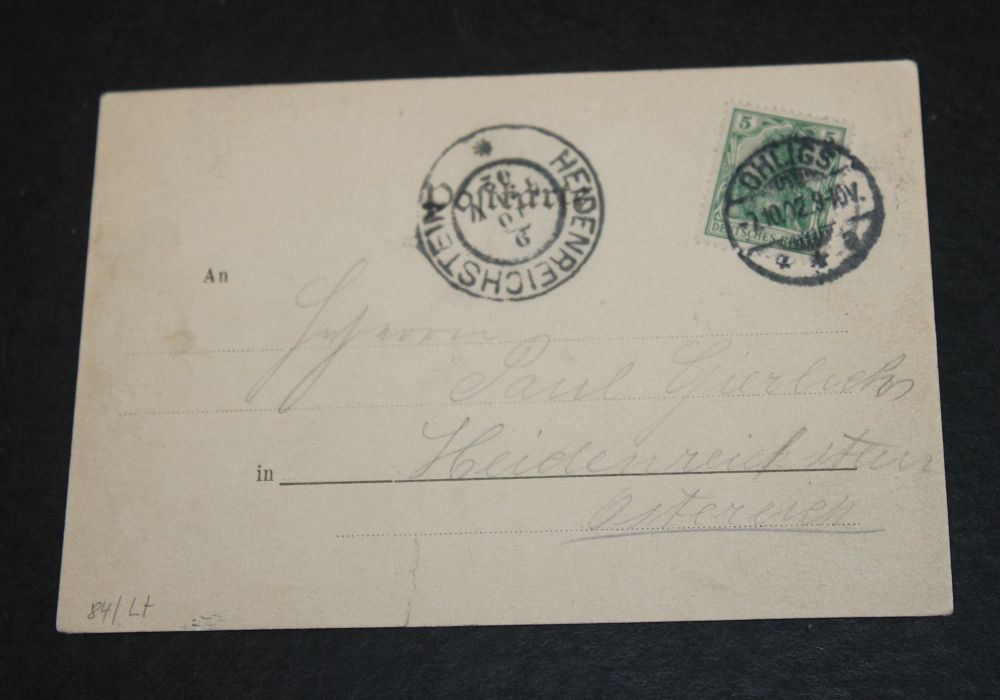 Postkarte
HEIDENREICHSTEIN
9
10
02
5 5
DEUTSCHES REICH
OHLIGS
7.10.02.9-10V.
An
Herrn
Paul Gierlichs
in
Heidenreichstein
Östereich
84/Lt